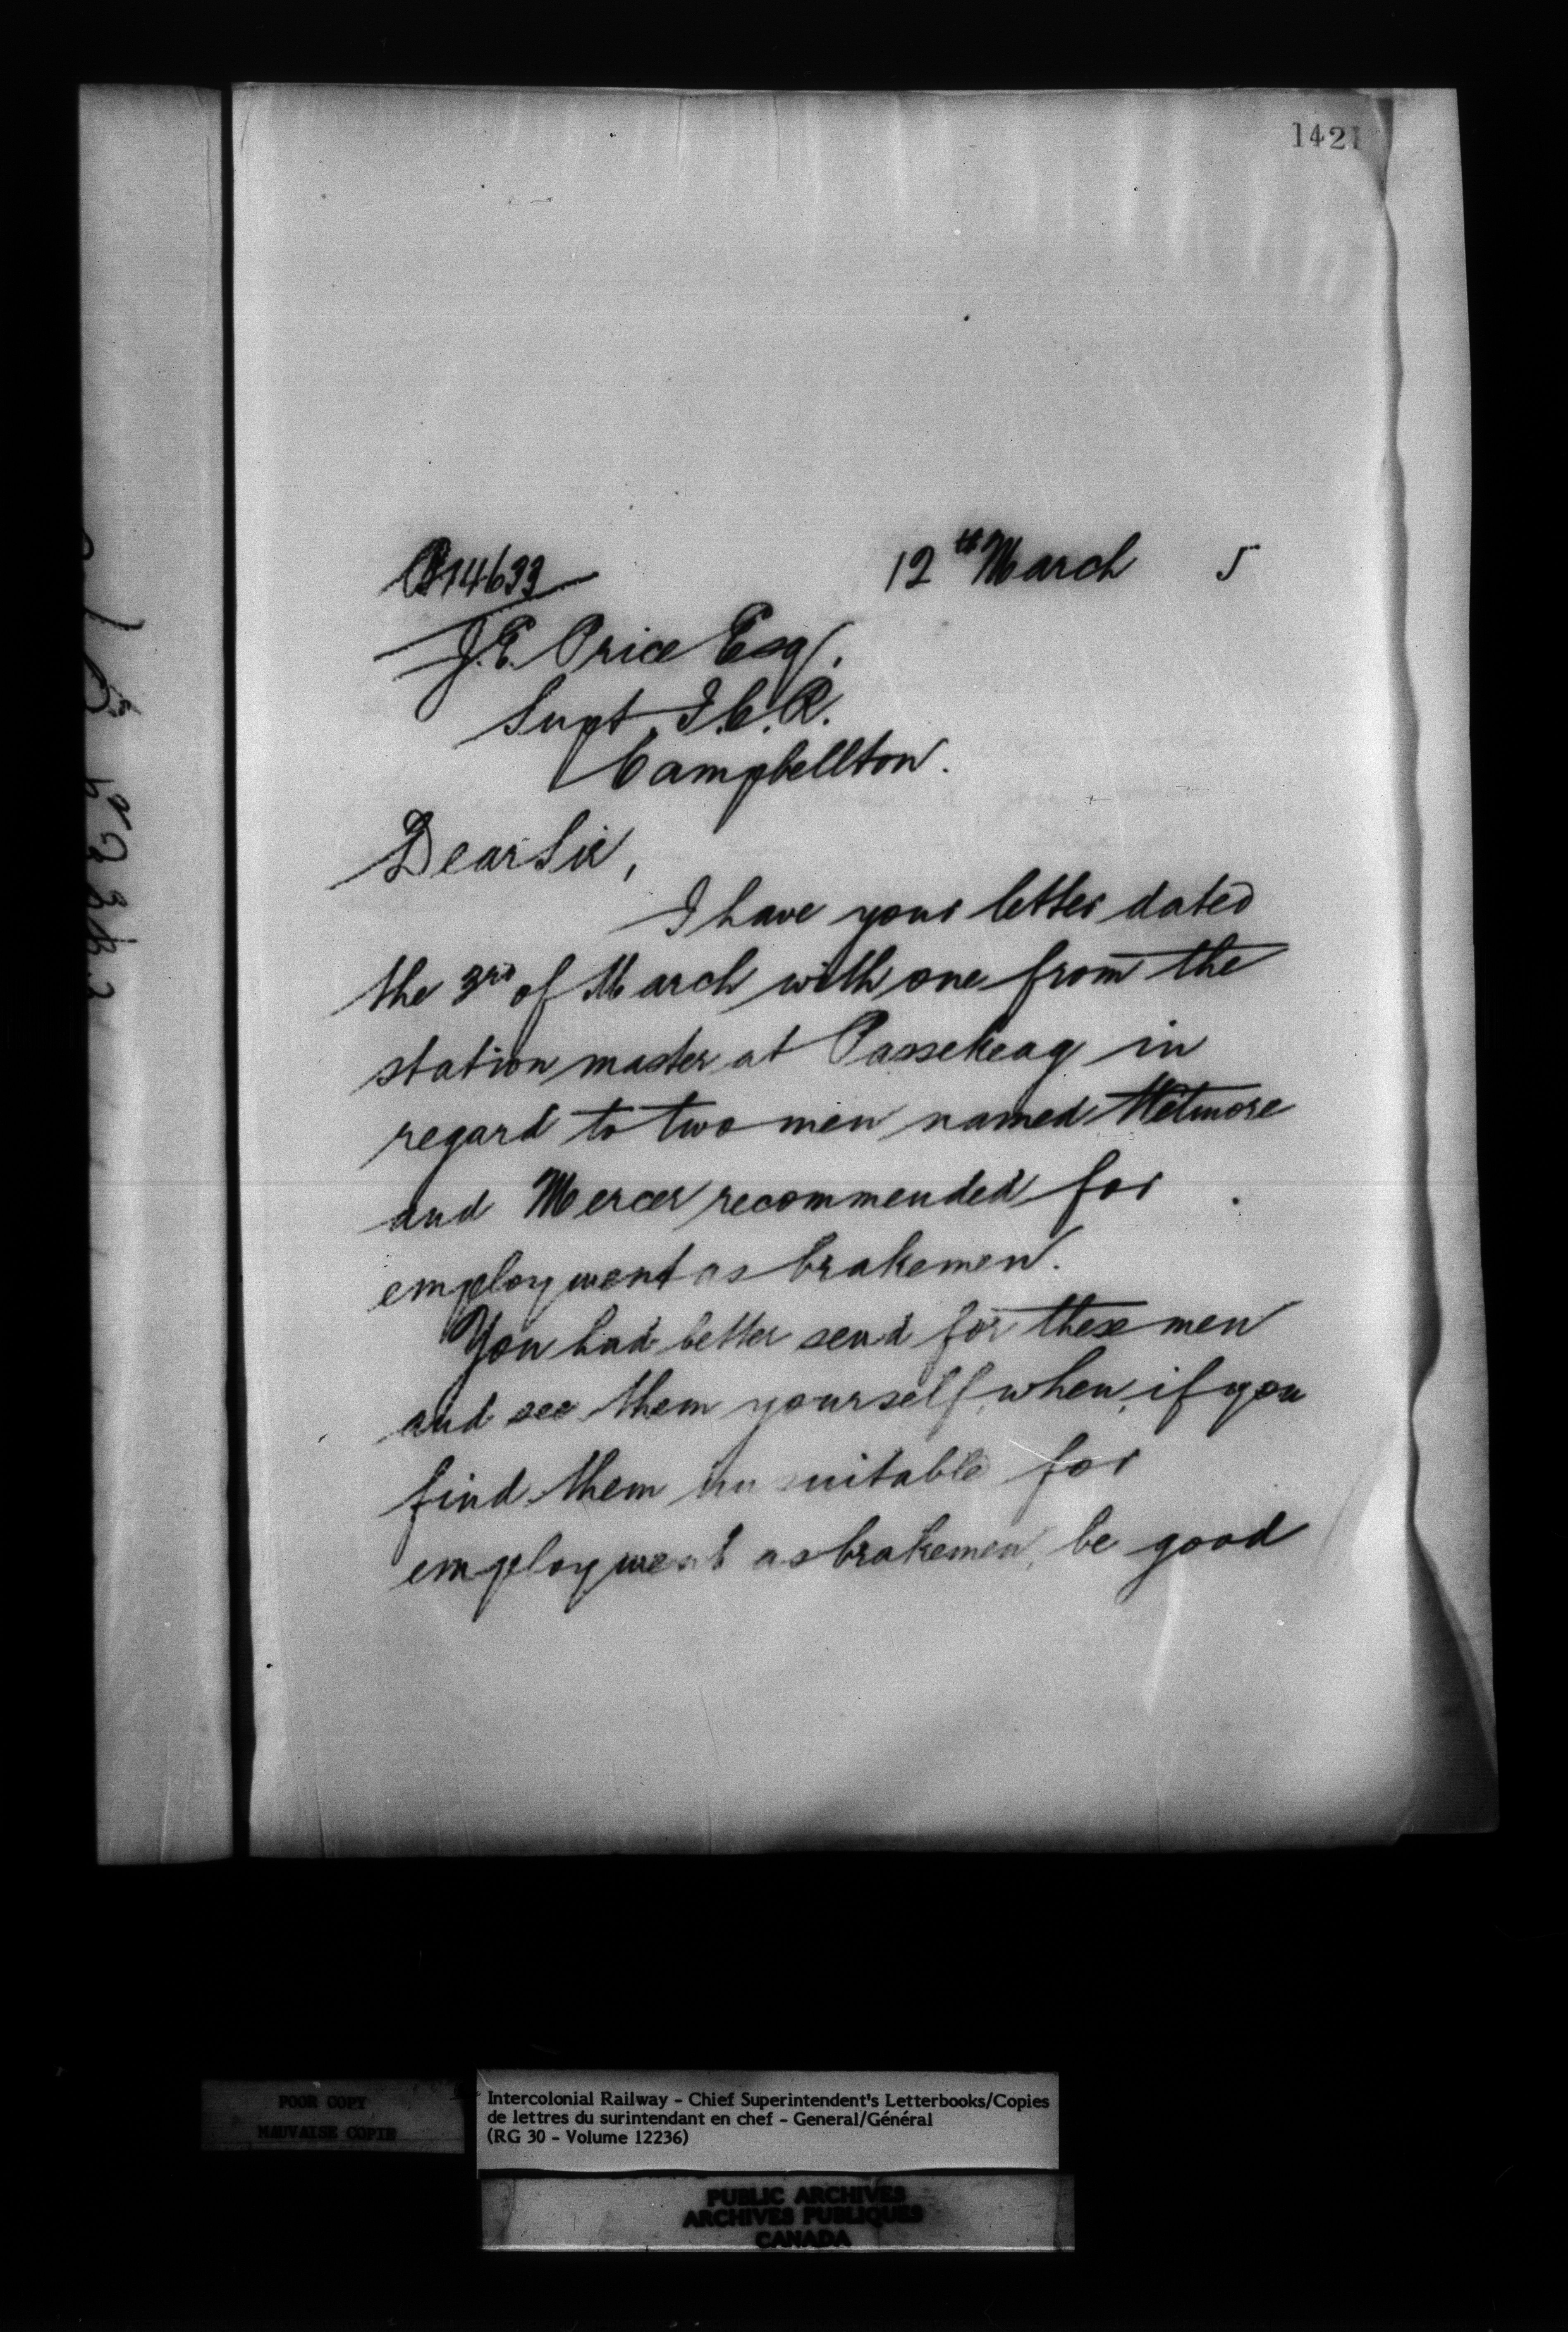 1421
12th March 5
14633
J.E. Price Esq.
Supt. I.C.R.
Campbellton.
Dear Sir,
I have your letter dated
the 3rd of March with one from the
station master at Passekeag in
regard to two men named Wetmore
and Mercer recommended for
employment as brakemen.
You had better send for these men
and see them yourself, when, if you
find them unsuitable for
employment as brakemen, be good
POOR COPY
MAUVAISE COPIE
Intercolonial Railway - Chief Superintendent's Letterbooks/Copies
de lettres du surintendant en chef - General/Général
(RG 30 - Volume 12236)
PUBLIC ARCHIVES
ARCHIVES PUBLIQUES
CANADA